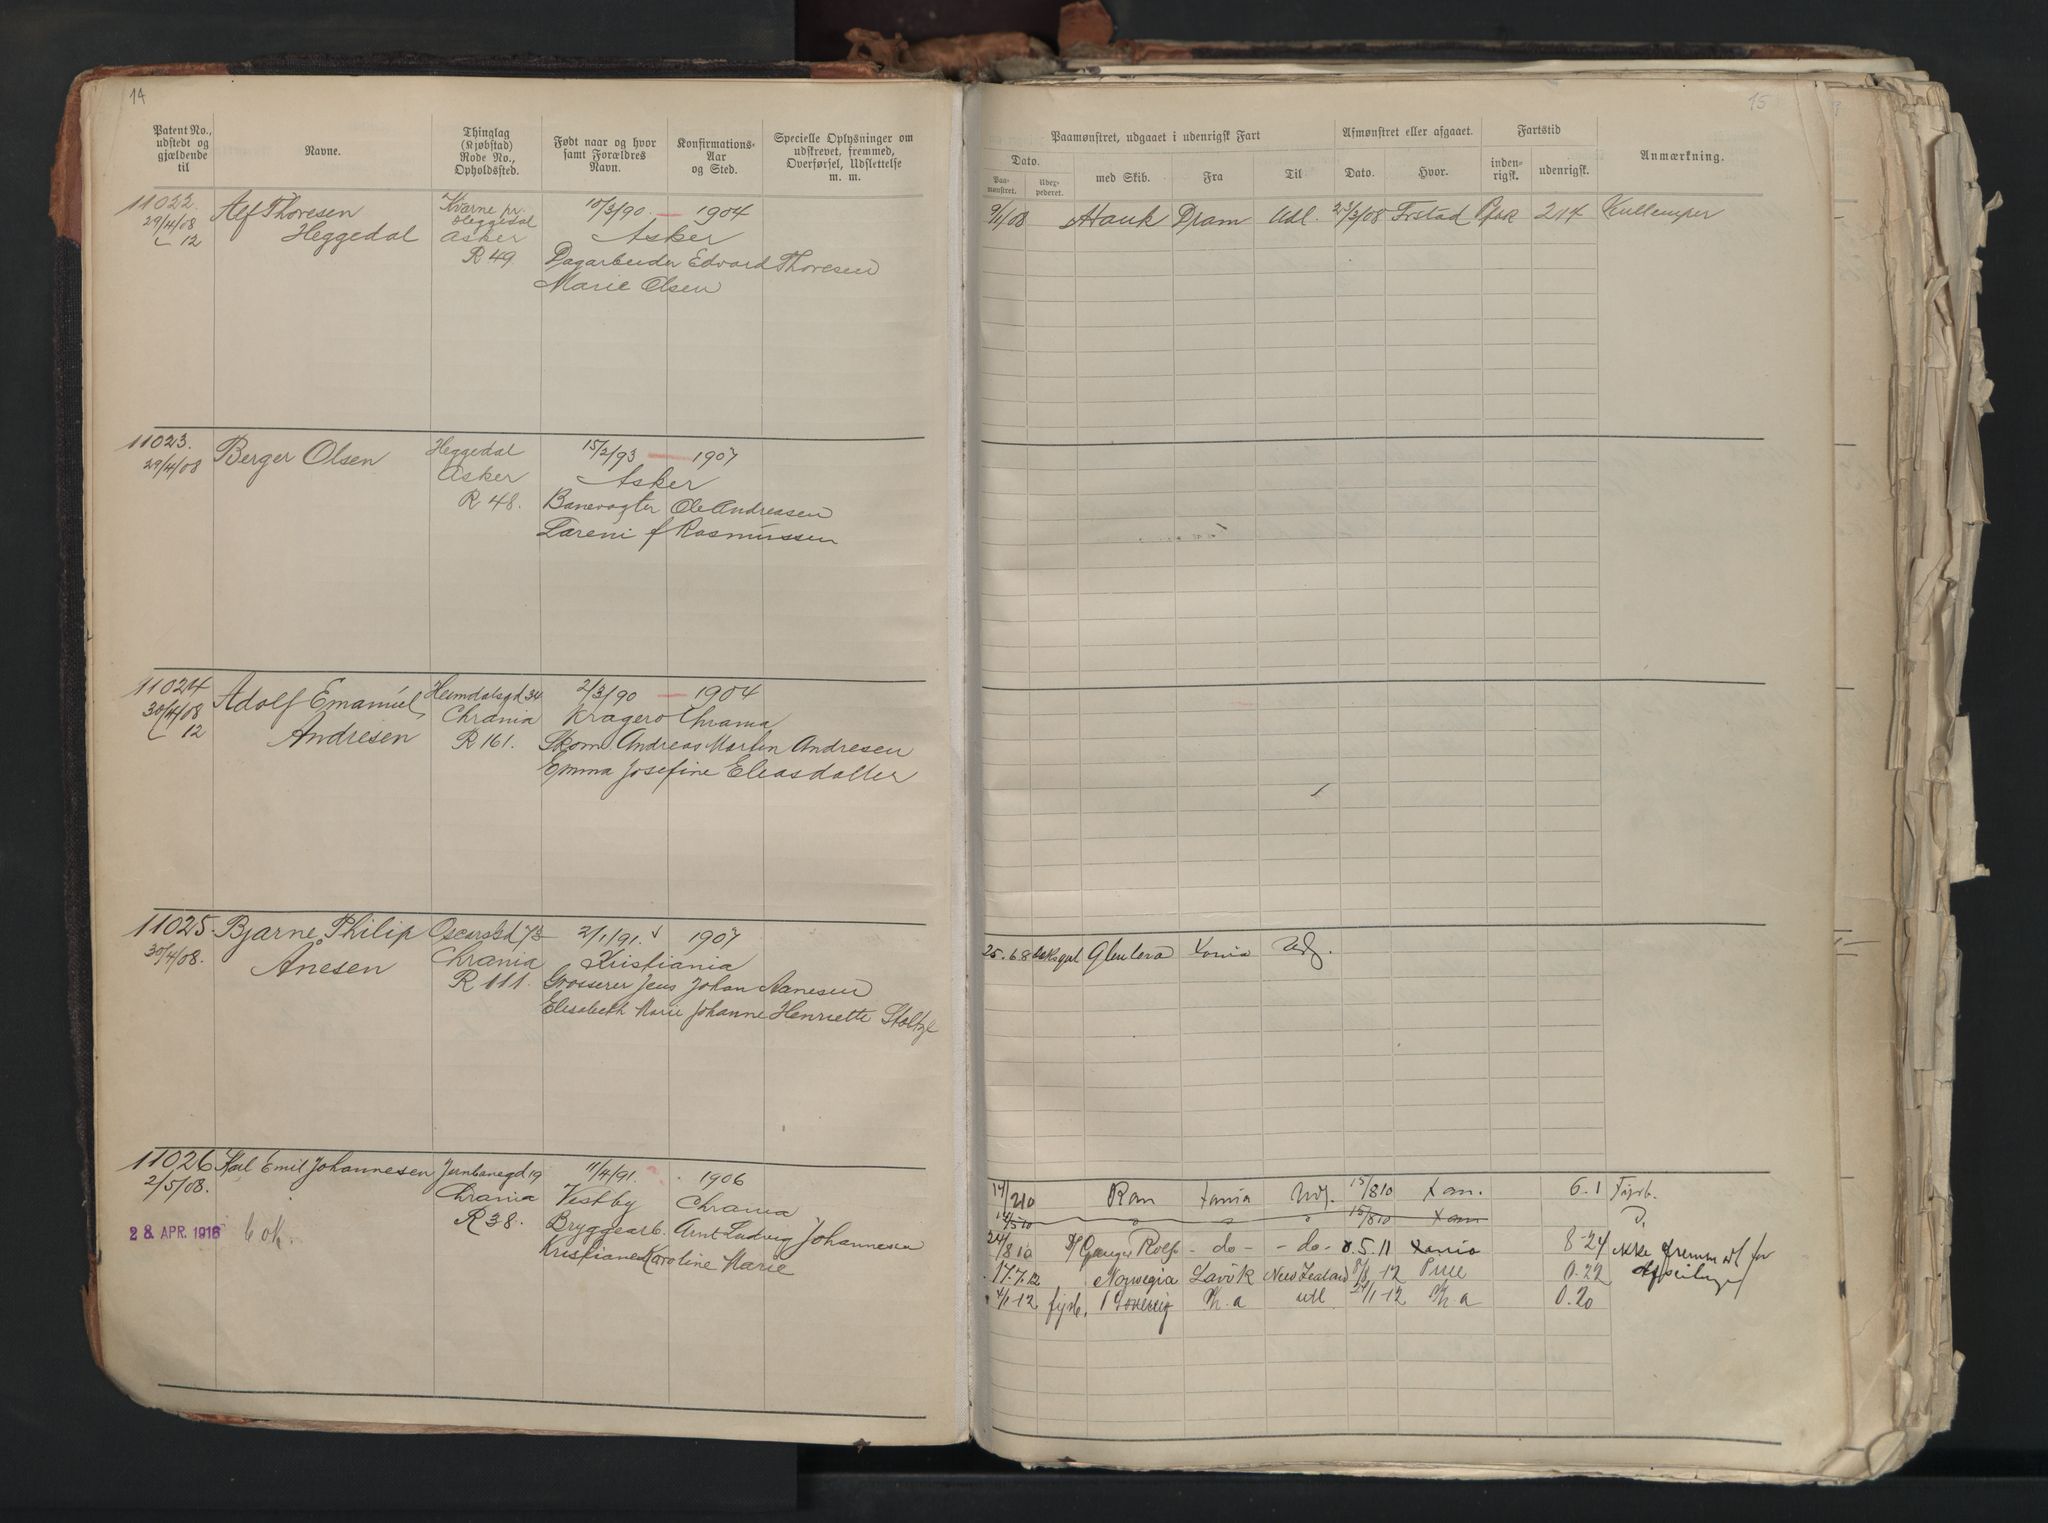 14
Patent No., udstedt og gjældende til
Navne.
Thinglag (Kjøbstad) Rode No., Opholdssted.
Født naar og hvor samt Forældres Navn.
Konfirmations-Aar og Sted.
Specielle Oplysninger om udskrevet, fremmed, Overførsel, Udslettelse m. m.
11022. Alf Thoresen 10/3/90 — 1904
29/4/08 Heggedal Heggedal
12 Asker Asker
R 49 Dagarbeider Edvard Thoresen
Marie Olsen
11023. Berger Olsen Heggedal 15/2/93 — 1907
29/4/08 Asker Asker
R 48. Banevogter Ole Andreasen
f Rasmussen
11024 Adolf Emanuel Heimdalsgd 34 2/3/90 — 1904
30/4/08 Andresen Chrania Kragerø Chrania
12 R 161. Skom. Andreas Martin Andresen
Emma Josefine Eliasdatter
11025. Bjarne Philip 2/1/91. 1907
30/4/08. Anesen Chrania Kristiania
R 111. Grosserer Jens Johan Aanesen
Elisabeth Marie Johanne Henriette
11026 Karl Emil Johannesen Jernbanegd 19 11/4/91. 1906
2/5/08. Chrania Vestby Chrania
28. APR. 1916 R 38. Bryggearb. Arnt Ludvig Johannesen
Kristiane Karoline Marie
15
Paamønstret, udgaaet i udenrigsk Fart
Afmønstret eller afgaaet.
Fartstid
Anmærkning.
Dato.
Paa-mønstret.
med Skib.
Fra
Til
Dato.
Hvor.
inden-rigsk.
udenrigsk.
9/1/08 Hauk Dram Udl. 23/3/08 Frstad 214 Kullemper
25.6.8 Xania Udl.
14/2 10 Ran Xania Udl. 15/8 10 Xan. 6.1 Fyrb.
15/8 10 Xan
24/8 10 D/ Ganger Rolf - do - - do - 5.11 Xania 8-24 ikke fremm
17.7.12 Norwegia Larvik New Zealand 12 0.22
12 fyrb. Kr.a Udl 12 Kr.a 0.20